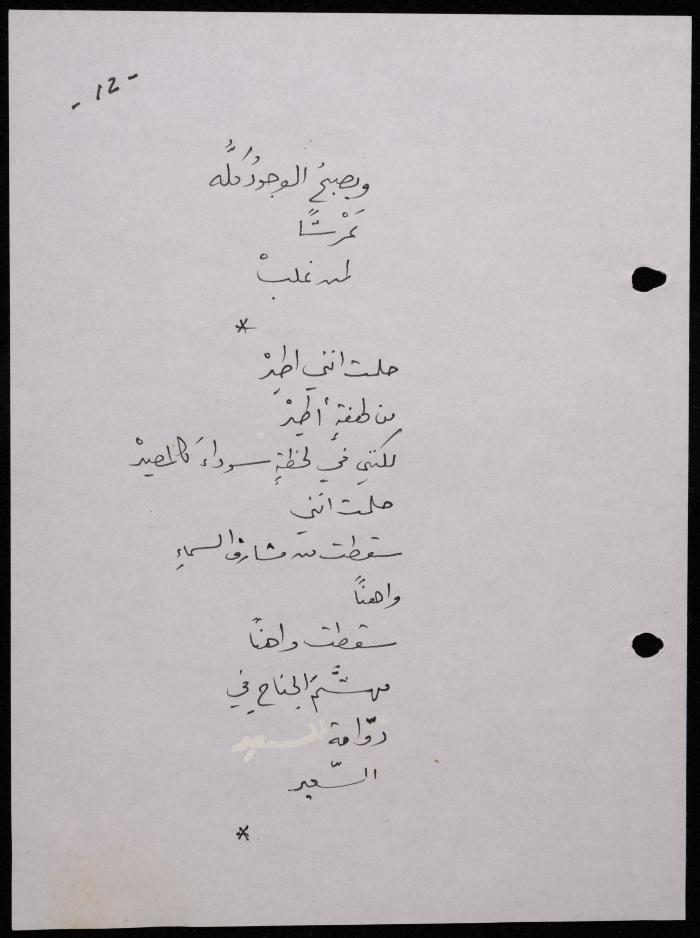 - 12 -
ويصبحُ الوجودُ كُلُّه
عَرْشًا
لمن غلبْ
*
حلمت انني اطِيرْ
من لهفةٍ أطيرْ
لكنني في لحظةٍ سوداءَ كالمصيرْ
حلمت انني
سقطت من مشارف السماءِ
واهنًا
سقطت واهنًا
مهشَّمَ الجناحِ في
دوّامة
السّعير
*